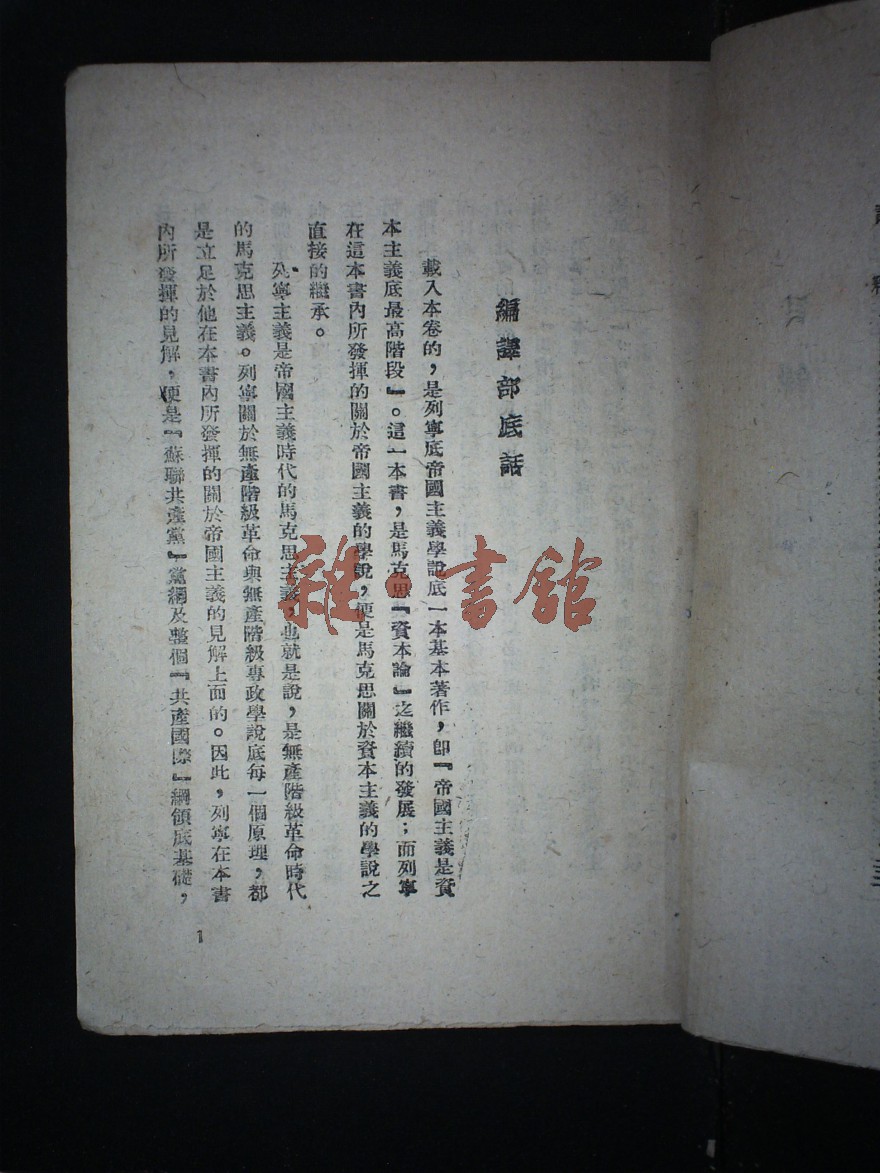 編譯部底話
載入本卷的，是列寧底帝國主義學說底一本基本著作，即『帝國主義是資
本主義底最高階段』。這一本書，是馬克思『資本論』之繼續的發展；而列寧
在這本書內所發揮的關於帝國主義的學說，便是馬克思關於資本主義的學說之
直接的繼承。
列寧主義是帝國主義時代的馬克思主義，也就是說，是無產階級革命時代
的馬克思主義。列寧關於無產階級革命與無產階級專政學說底每一個原理，都
是立足於他在本書內所發揮的關於帝國主義的見解上面的。因此，列寧在本書
內所發揮的見解，便是『蘇聯共產黨』黨綱及整個『共產國際』綱領底基礎，
1
雜·書館